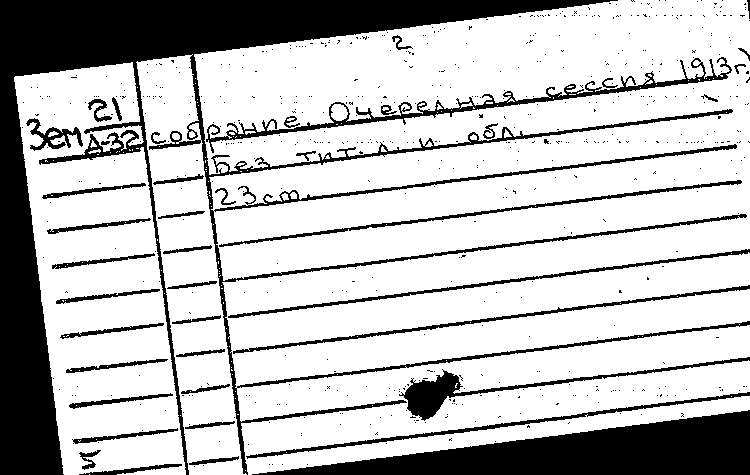 2
21
Зем Д-32 собрание. Очередная сессия 1913г.)
Без тит. л. и обл.
23 ст.